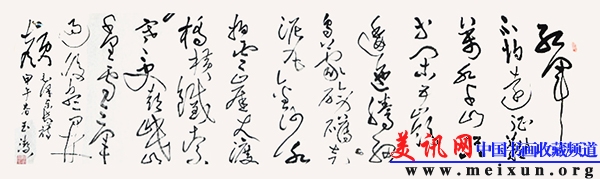 红军
不怕远征难
万水千山只
等闲五岭
逶迤腾细
浪乌蒙磅礴走
泥丸金沙水
拍云崖暖大渡
桥横铁索
寒更喜岷山
千里雪三军
过后尽开
颜 毛泽东长征诗
甲午春
美讯网
中国书画收藏频道
www.meixun.org